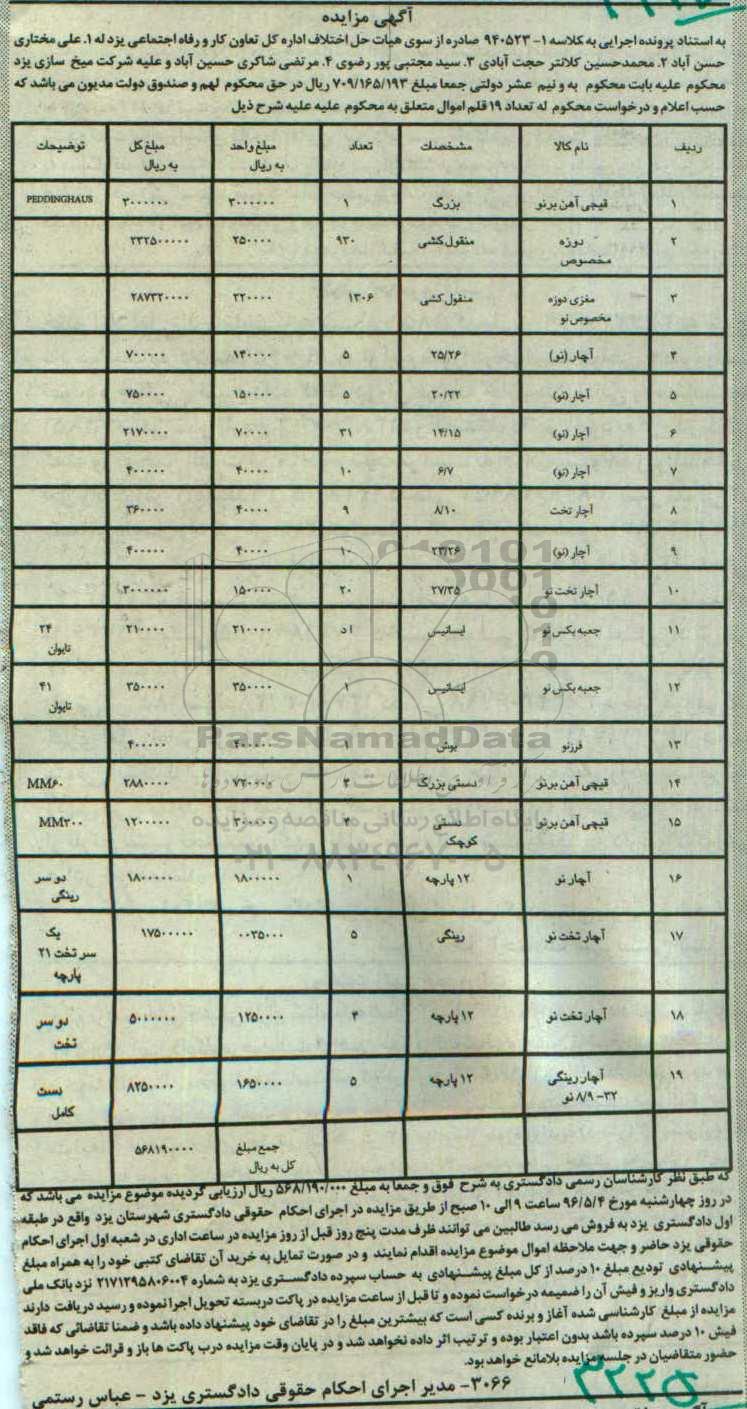 آگهی مزایده
به استناد پرونده اجرایی به کلاسه ۱- ۹۴۰۵۲۳ صادره از سوی هیأت حل اختلاف اداره کل تعاون کار و رفاه اجتماعی یزد له ۱. علی مختاری
حسن آباد ۲. محمدحسین کلانتر حجت آبادی ۳. سید مجتبی پور رضوی ۴. مرتضی شاکری حسین آباد و علیه شرکت میخ سازی یزد
محکوم علیه بابت محکوم به و نیم عشر دولتی جمعا مبلغ ۷۰۹/۱۶۵/۱۹۳ ریال در حق محکوم لهم و صندوق دولت مدیون می باشد که
حسب اعلام و درخواست محکوم له تعداد ۱۹ قلم اموال متعلق به محکوم علیه علیه شرح ذیل
ردیف نام کالا مشخصات تعداد مبلغ واحد به ریال مبلغ کل به ریال توضیحات
۱ قیچی آهن برنو بزرگ ۱ ۳۰۰۰۰۰۰ ۳۰۰۰۰۰۰ PEDDINGHAUS
۲ دوزه مخصوص منقول کشی ۹۳۰ ۲۵۰۰۰۰ ۲۳۲۵۰۰۰۰۰
۳ مغزی دوزه مخصوص نو منقول کشی ۱۳۰۶ ۲۲۰۰۰۰ ۲۸۷۳۲۰۰۰۰
۴ آچار (نو) ۲۵/۲۶ ۵ ۱۴۰۰۰۰ ۷۰۰۰۰۰
۵ آچار (نو) ۲۰/۲۲ ۵ ۱۵۰۰۰۰ ۷۵۰۰۰۰
۶ آچار (نو) ۱۴/۱۵ ۳۱ ۷۰۰۰۰ ۲۱۷۰۰۰۰
۷ آچار (نو) ۶/۷ ۱۰ ۴۰۰۰۰ ۴۰۰۰۰۰
۸ آچار تخت ۸/۱۰ ۹ ۴۰۰۰۰ ۳۶۰۰۰۰
۹ آچار (نو) ۲۳/۲۶ ۱۰ ۴۰۰۰۰ ۴۰۰۰۰۰
۱۰ آچار تخت نو ۲۷/۳۵ ۲۰ ۱۵۰۰۰۰ ۳۰۰۰۰۰۰
۱۱ جعبه بکس نو ایساتیس ا د ۲۱۰۰۰۰ ۲۱۰۰۰۰ ۲۴ تایوان
۱۲ جعبه بکس نو ایساتیس ۱ ۳۵۰۰۰۰ ۳۵۰۰۰۰ ۴۱ تایوان
۱۳ فرزنو بوش ۱ ۴۰۰۰۰۰ ۴۰۰۰۰۰
۱۴ قیچی آهن برنو دستی بزرگ ۴ ۷۲۰۰۰۰ ۲۸۸۰۰۰۰ MM۶۰
۱۵ قیچی آهن برنو دستی کوچک ۴ ۳۰۰۰۰۰ ۱۲۰۰۰۰۰ MM۳۰۰
۱۶ آچار نو ۱۲ پارچه ۱ ۱۸۰۰۰۰۰ ۱۸۰۰۰۰۰ دو سر رینگی
۱۷ آچار تخت نو رینگی ۵ ۰۰۳۵۰۰۰ ۱۷۵۰۰۰۰۰ یک سر تخت ۲۱ پارچه
۱۸ آچار تخت نو ۱۲ پارچه ۴ ۱۲۵۰۰۰۰ ۵۰۰۰۰۰۰ دو سر تخت
۱۹ آچار رینگی ۳۲- ۸/۹ نو ۱۲ پارچه ۵ ۱۶۵۰۰۰۰ ۸۲۵۰۰۰۰ دست کامل
جمع مبلغ کل به ریال ۵۶۸۱۹۰۰۰۰
که طبق نظر کارشناسان رسمی دادگستری به شرح فوق و جمعا به مبلغ ۵۶۸/۱۹۰/۰۰۰ ریال ارزیابی گردیده موضوع مزایده می باشد که
در روز چهارشنبه مورخ ۹۶/۵/۴ ساعت ۹ الی ۱۰ صبح از طریق مزایده در اجرای احکام حقوقی دادگستری شهرستان یزد واقع در طبقه
اول دادگستری یزد به فروش می رسد طالبین می توانند ظرف مدت پنج روز قبل از روز مزایده در ساعت اداری در شعبه اول اجرای احکام
حقوقی یزد حاضر و جهت ملاحظه اموال موضوع مزایده اقدام نمایند و در صورت تمایل به خرید آن تقاضای کتبی خود را به همراه مبلغ
پیشنهادی تودیع مبلغ ۱۰ درصد از کل مبلغ پیشنهادی به حساب سپرده دادگستری یزد به شماره ۲۱۷۱۲۹۵۸۰۶۰۰۴ نزد بانک ملی
دادگستری واریز و فیش آن را ضمیمه درخواست نموده و تا قبل از ساعت مزایده در پاکت دربسته تحویل اجرا نموده و رسید دریافت دارند
مزایده از مبلغ کارشناسی شده آغاز و برنده کسی است که بیشترین مبلغ را در تقاضای خود پیشنهاد داده باشد و ضمنا تقاضائی که فاقد
فیش ۱۰ درصد سپرده باشد بدون اعتبار بوده و ترتیب اثر داده نخواهد شد و در پایان وقت مزایده درب پاکت ها باز و قرائت خواهد شد و
حضور متقاضیان در جلسه مزایده بلامانع خواهد بود.
۳۰۶۶- مدیر اجرای احکام حقوقی دادگستری یزد - عباس رستمی
۳۲۲۵
ParsNamadData
پایگاه اطلاع رسانی مناقصه و مزایده
۰۲۱-۸۸۳۴۹۶۷۰-۵